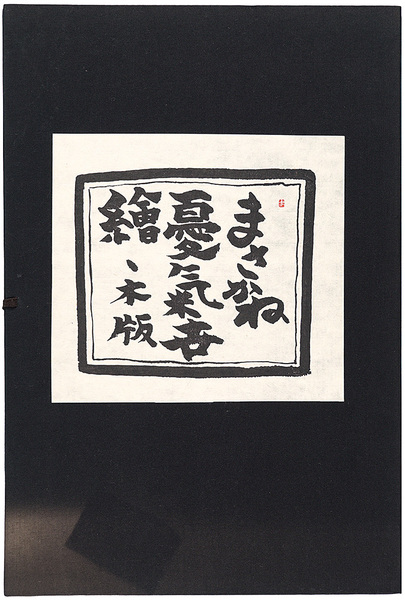 まさかね
憂氣吾
繪、木版